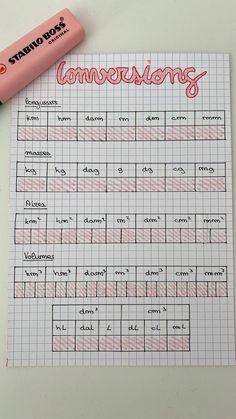 STABILO BOSS
ORIGINAL
Conversions
Longueurs
km hm dam m dm cm mm
masses
kg hg dag g dg cg mg
Aires
km² hm² dam² m² dm² cm² mm²
Volumes
km³ hm³ dam³ m³ dm³ cm³ mm³
dm³ cm³
hL daL L dL cL mL